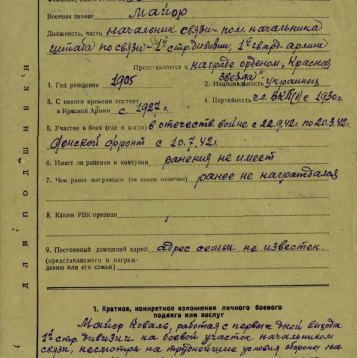 Военное звание Майор
Должность, часть начальник связи - пом. начальника
штаба по связи - 1й стр. дивизии, 1й гвард. армии
Представляется к награде орденом „Красная
звезда"
1. Год рождения 1905 2. Национальность украинец
3. С какого времени состоит
в Красной Армии с 1927 г. 4. Партийность чл. ВКП(б) с 1930 г.
5. Участие в боях (где и когда) в отечеств. войне с 22.9.42 г. по 20.3.42 г.
Донской фронт с 10.7.42 г.
6. Имеет ли ранения и контузии ранения не имеет
7. Чем ранее награжден (за какие отличия) ранее не награждался
8. Каким РВК призван
9. Постоянный домашний адрес: адрес семьи не известен.
(представляемого к награждению или его семьи)
1. Краткое, конкретное изложение личного боевого
подвига или заслуг
Майор Коваль, работая с первых дней выхода
1й стр. дивизии на боевой участок начальником
связи, несмотря на труднейшие условия обороны на
ДЛЯ ПОДШИВКИ